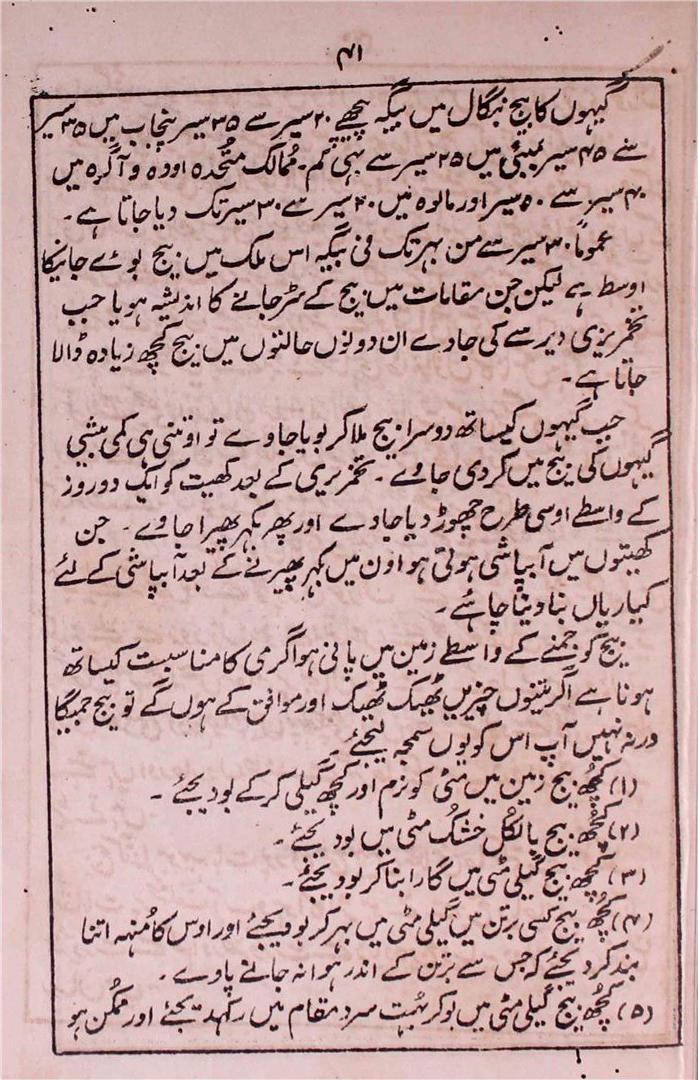 ۴۱
گیہوں کا بیج بنگال میں بیگہ پیچھے ۲۰ سیر سے ۳۵ سیر پنجاب میں ۳۵ سیر
سے ۴۵ سیر بمبئی میں ۲۵ سیر سے بہی کم۔ ممالک متحدہ اودہ و آگرہ میں
۴۰ سیر سے ۵۰ سیر اور مالوہ میں ۲۰ سیر سے ۳۰ سیر تک دیا جاتا ہے۔
عموماً ۳۰ سیر سے من بہر تک فی بیگہ اس ملک میں بیج بوئے جانیکا
اوسط ہے لیکن جن مقامات میں بیج کے سڑ جانے کا اندیشہ ہو یا جب
تخمریزی دیر سے کی جاوے ان دونوں حالتوں میں بیج کچھ زیادہ ڈالا
جاتا ہے۔
جب گیہوں کیساتھ دوسرا بیج ملا کر بویا جاوے تو اوتنی ہی کمی بیشی
گیہوں کی بیج میں کر دی جاوے۔ تخمریزی کے بعد کھیت کو ایک دو روز
کے واسطے اوسی طرح چھوڑ دیا جاوے اور پھر کہر پھیرا جاوے۔ جن
کھیتوں میں آبپاشی ہوتی ہو اون میں کہر پھیرنے کے بعد آبپاشی کے لئے
کیاریاں بنا دینا چاہئے۔
بیج کو جمنے کے واسطے زمین میں پانی ہوا گرمی کا مناسبت کیساتھ
ہونا ہے اگر تینوں چیزیں ٹھیک ٹھیک اور موافق کے ہوں گے تو بیج جمیگا
ورنہ نہیں آپ اس کو یوں سمجہ لیجئے۔
(۱) کچھ بیج زمین میں مٹی کو نرم اور کچھ گیلی کر کے بو دیجئے۔
(۲) کچھ بیج بالکل خشک مٹی میں بو دیجئے۔
(۳) کچھ بیج گیلی مٹی میں گارا بنا کر بو دیجئے۔
(۴) کچھ بیج کسی برتن میں گیلی مٹی میں بہر کر بو دیجئے اور اوس کا مُنہہ اتنا
بند کر دیجئے کہ جس سے برتن کے اندر ہوا نہ جانے پاوے۔
(۵) کچھ بیج گیلی مٹی میں بو کر بہت سرد مقام میں رکہد یجئے اور ممکن ہو